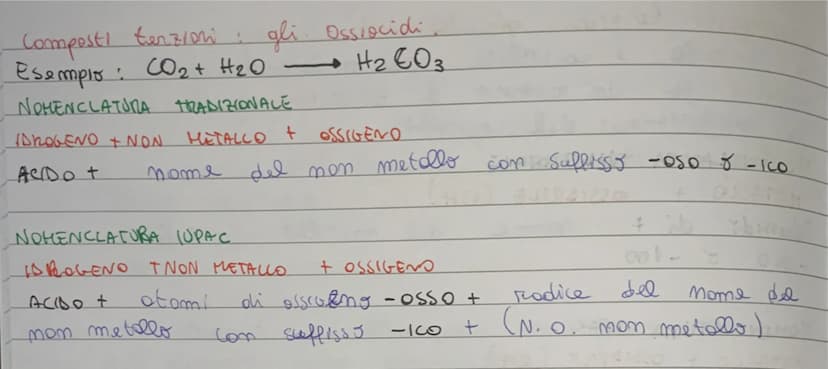 Composti ternari: gli Ossiacidi.
Esempio: CO2 + H2O → H2CO3
NOMENCLATURA TRADIZIONALE
IDROGENO + NON METALLO + OSSIGENO
ACIDO + nome del non metallo con suffisso -OSO o -ICO
NOMENCLATURA IUPAC
IDROGENO + NON METALLO + OSSIGENO
ACIDO + atomi di ossigeno -OSSO + radice del nome del
non metallo con suffisso -ICO + (N.O. non metallo)